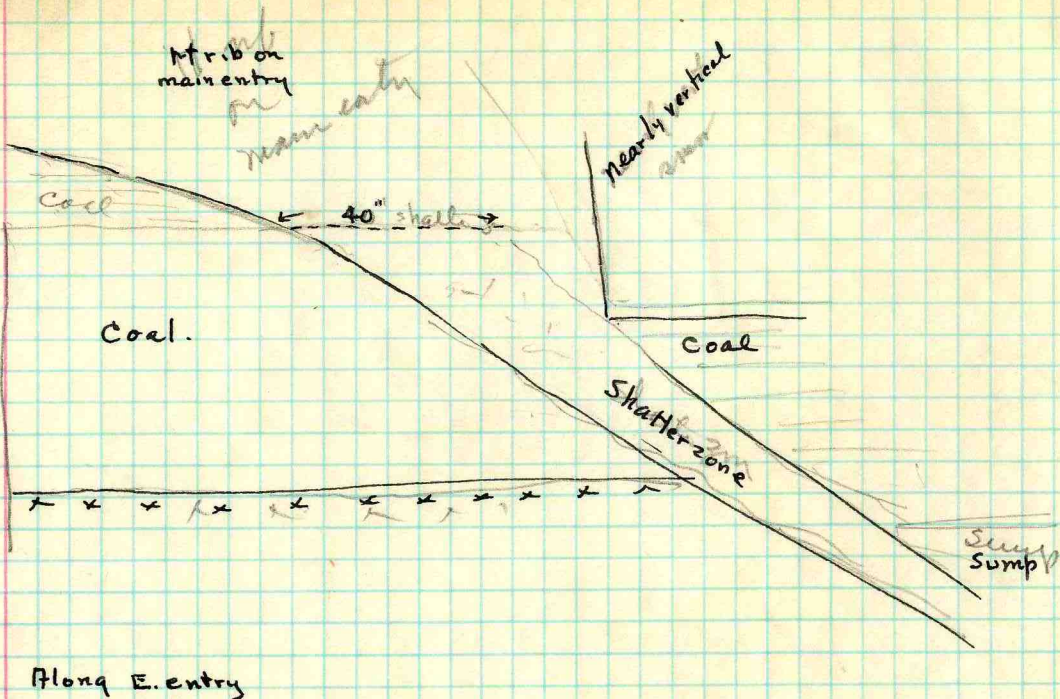 At rib on
main entry
on
main entry
nearly vertical
Coal
40" shatter
Coal.
Coal
Shatter zone
Sump
Sump
Along E. entry